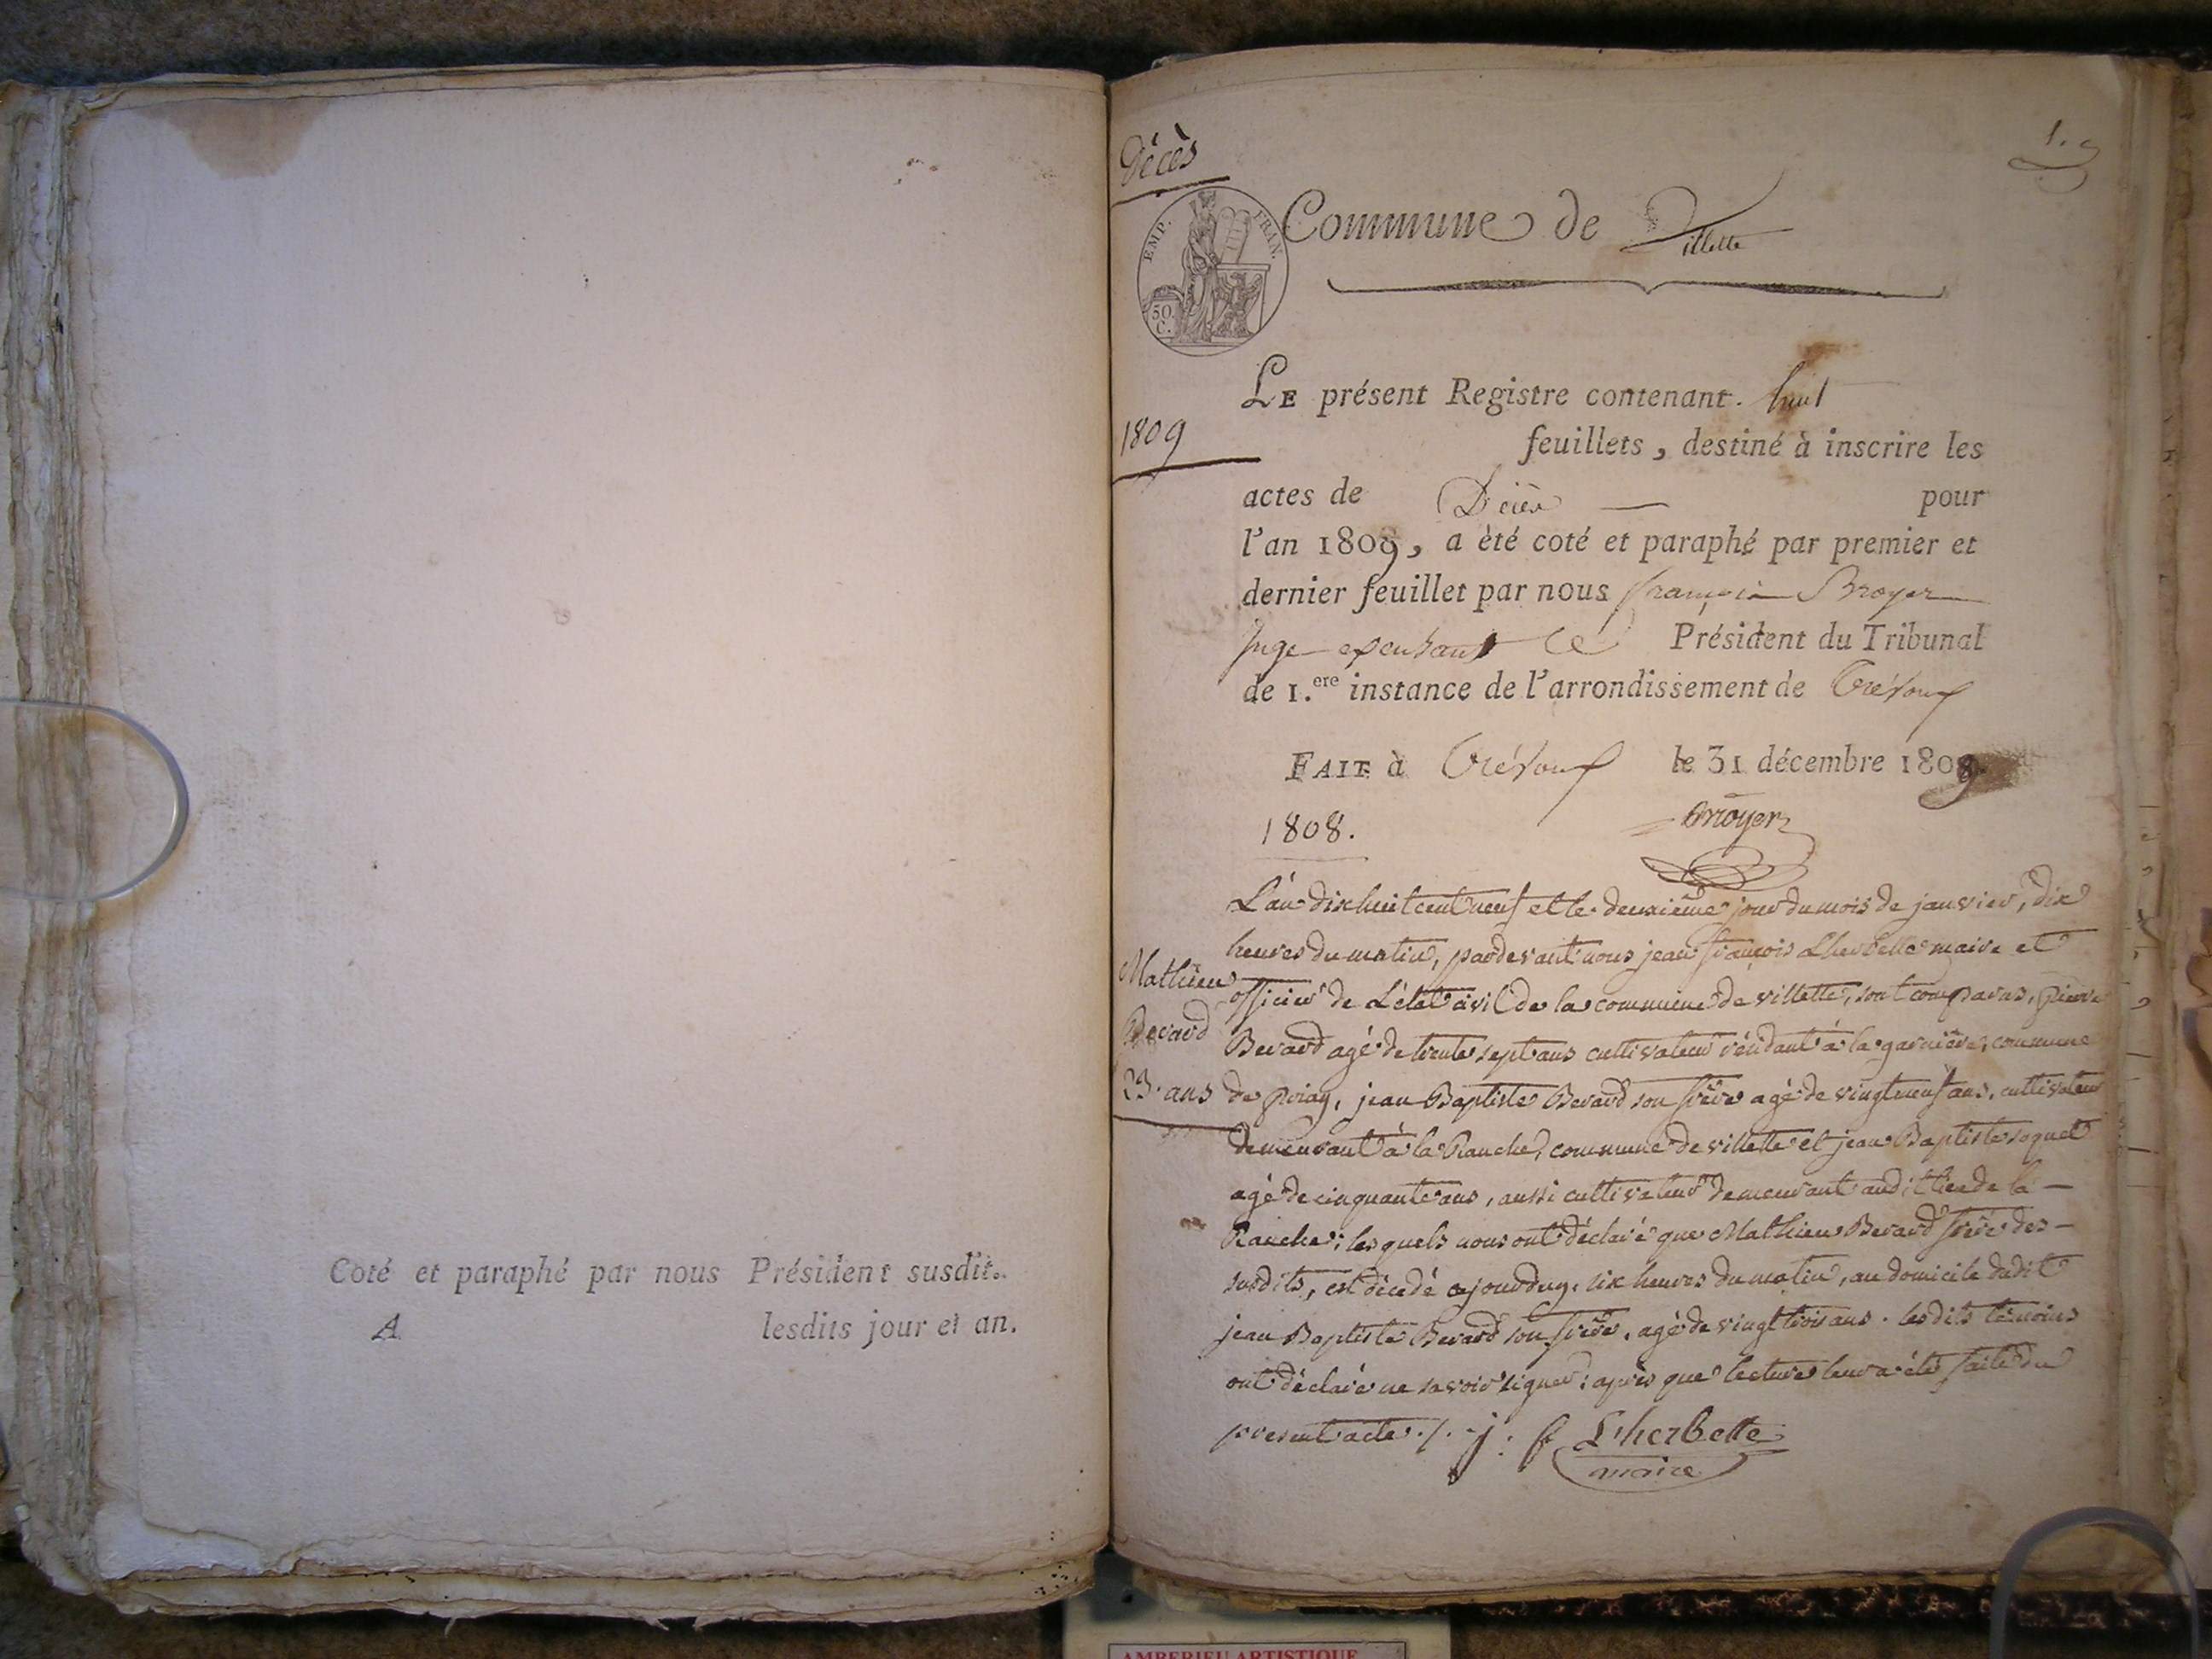 Coté et paraphé par nous Président susdit.
A lesdits jour et an.
Décès
1.
EMP. FRAN.
50 C.
Commune de Villette
LE présent Registre contenant huit
1809
feuillets, destiné à inscrire les
actes de Décès pour
l'an 1809, a èté coté et paraphé par premier et
dernier feuillet par nous françois Broyer
Juge exerçant le Président du Tribunal
de 1.ere instance de l'arrondissement de Trévoux
FAIT à Trévoux le 31 décembre 1809.
1808. Broyer
L'an dix huit cent neuf et le deuxième jour du mois de janvier, dix
heures du matin, pardevant nous jean françois Lherbette maire et
Mathieu
officier de L'état civil de la commune de villette, sont comparus, pierre
Berard
Berard agé de trente sept ans cultivateur résidant à la garnière, commune
23. ans
de priay, jean Baptiste Berard son frère agé de vingt neuf ans, cultivateur
demeurant à la Ranche, commune de villette et jean Baptiste soquet
agé de cinquante ans, aussi cultivateur demeurant audit lieu de la
Ranche; lesquels nous ont déclaré que Mathieu Berard frère des
susdits, est décédé ajourduy, six heures du matin, au domicile dudit
jean Baptiste Berard son frère, agé de vingt trois ans. lesdits témoins
ont déclaré ne savoir signer; après que lecture leur a été faite du
present acte./. j: f Lherbette
maire
AMBERIEU ARTISTIQUE